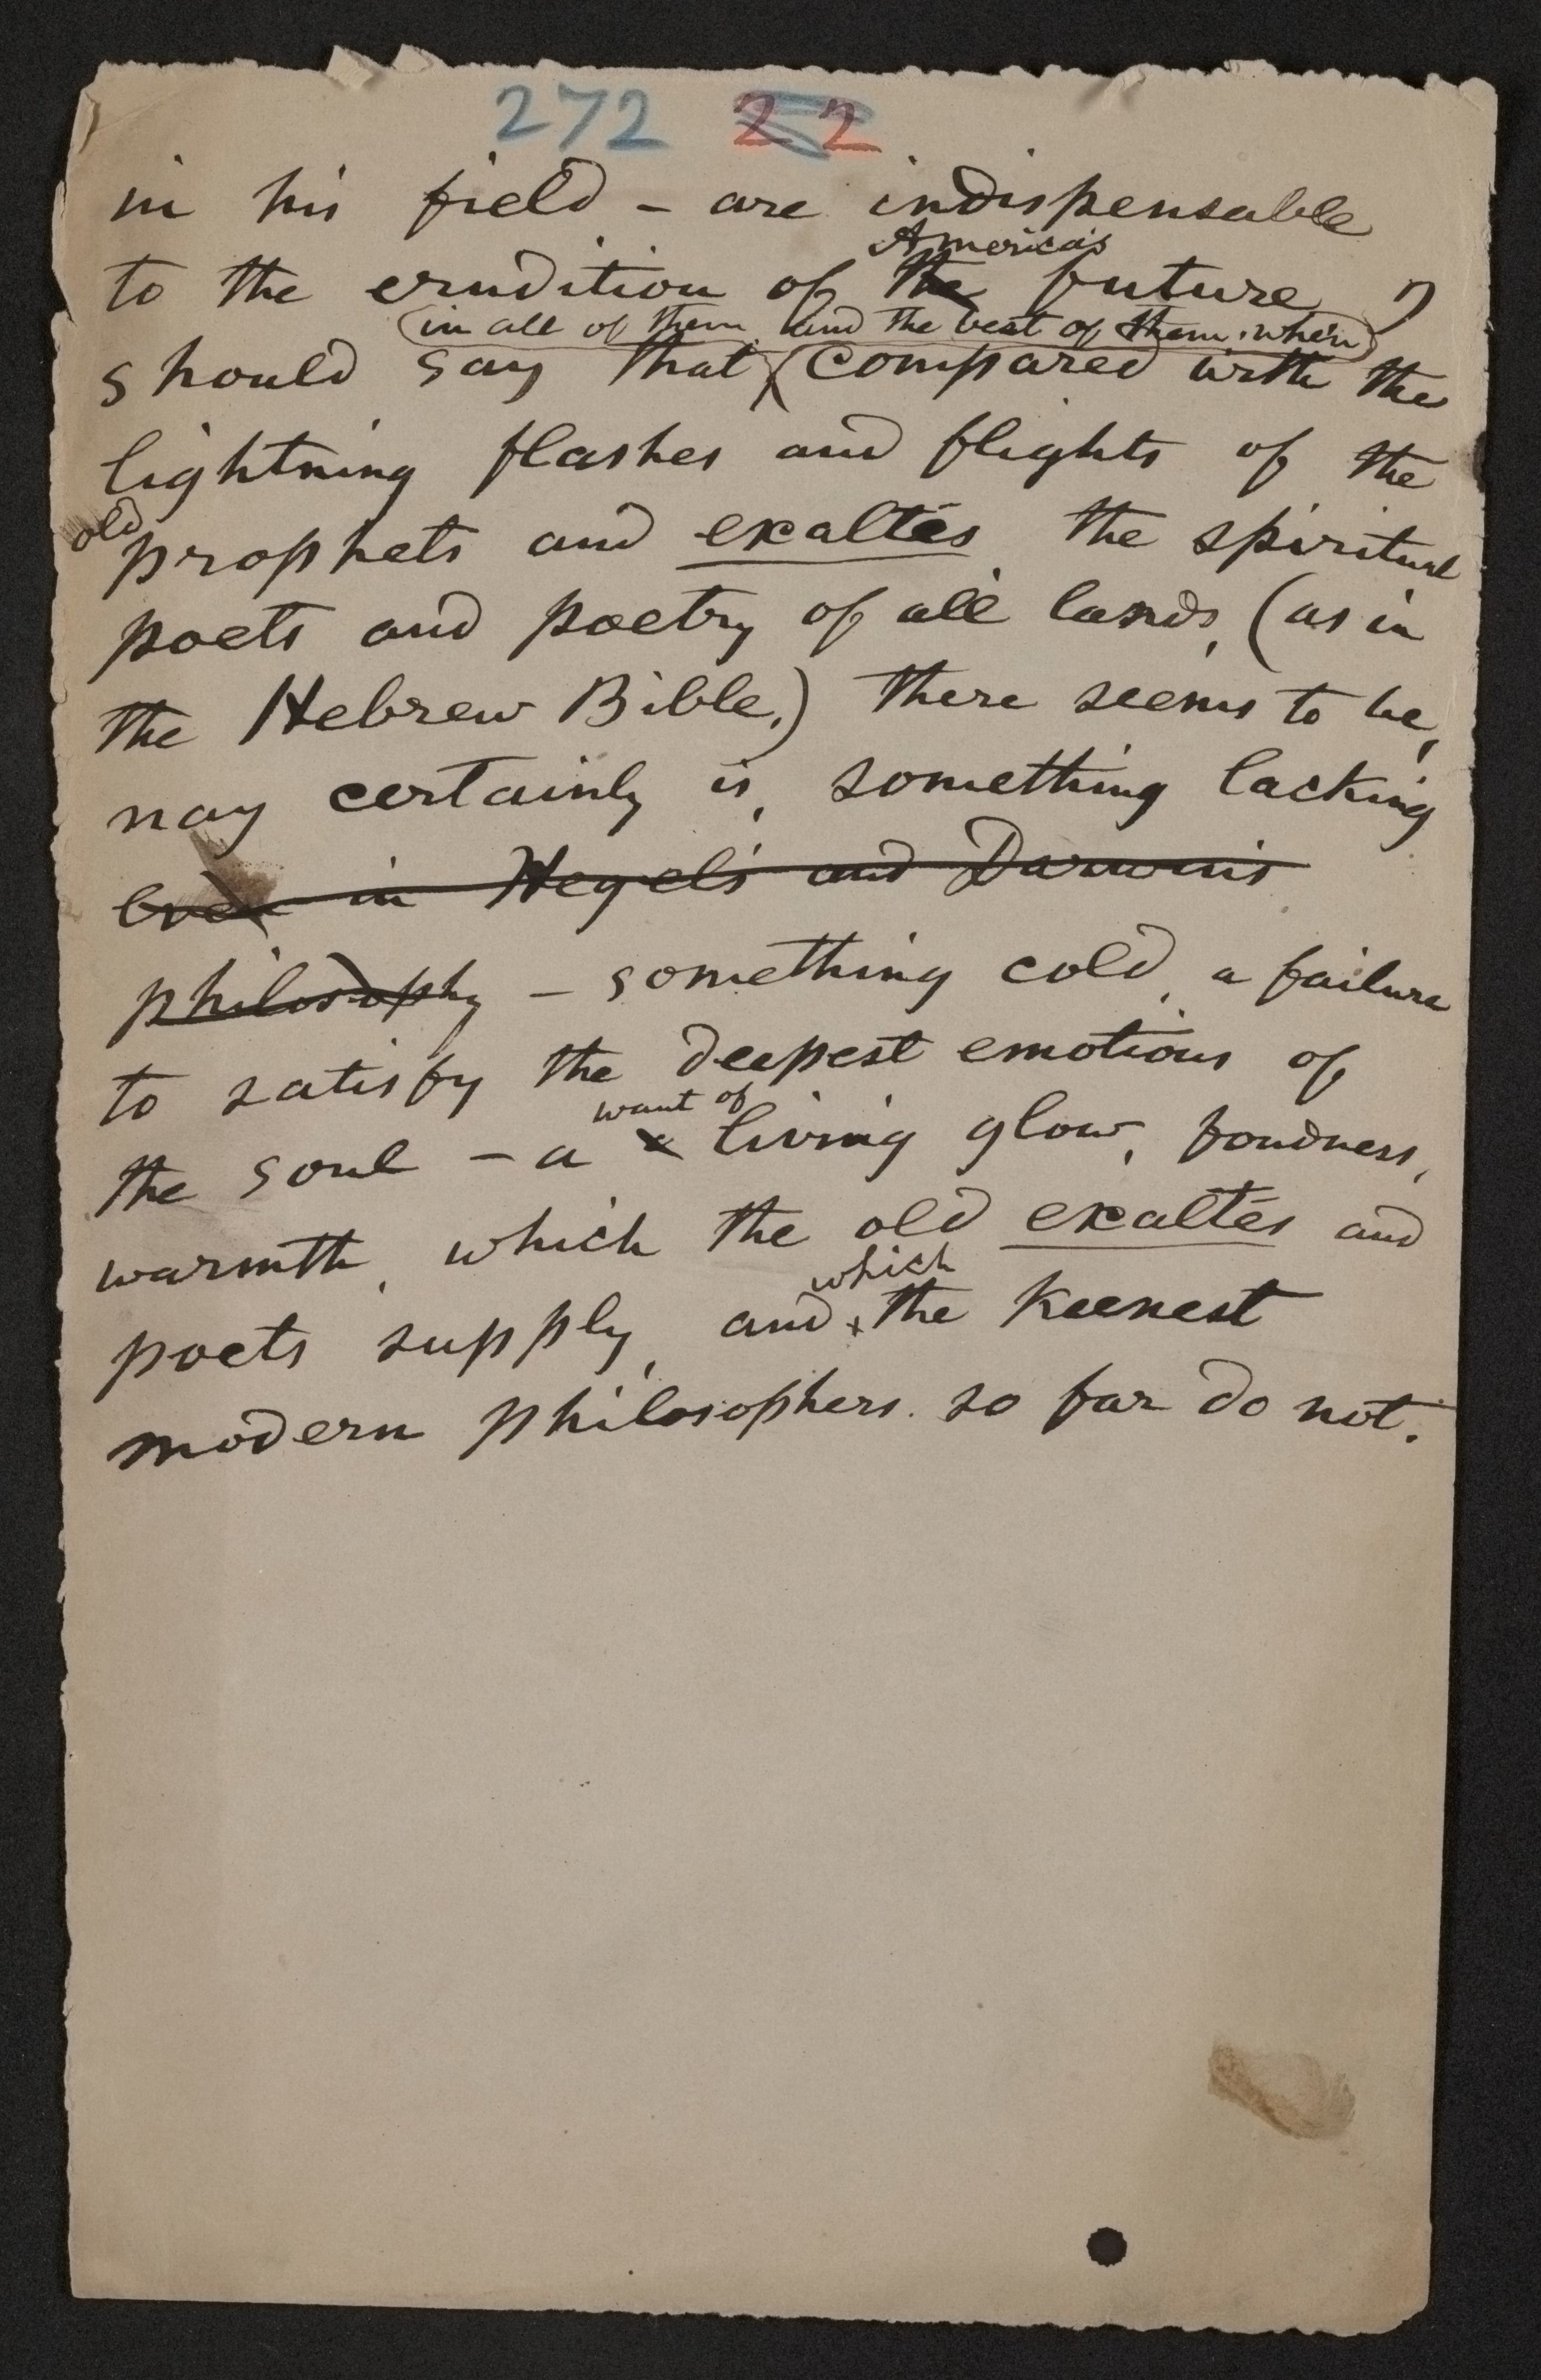 272 22
in his field – are indispensable
America's
to the erudition of the future, I
(in all of them, and the best of them, when)
should say that (compared with the
lightning flashes and flights of the
old
prophets and exaltés the spiritual
poets and poetry of all lands, (as in
the Hebrew Bible,) there seems to be,
nay certainly is, something lacking
even in Hegel's and Darwin's
philosophy – something cold, a failure
to satisfy the deepest emotions of
want of
the soul – a living glow, fondness,
warmth, which the old exaltés and
which
poets supply, and the keenest
modern philosophers so far do not.